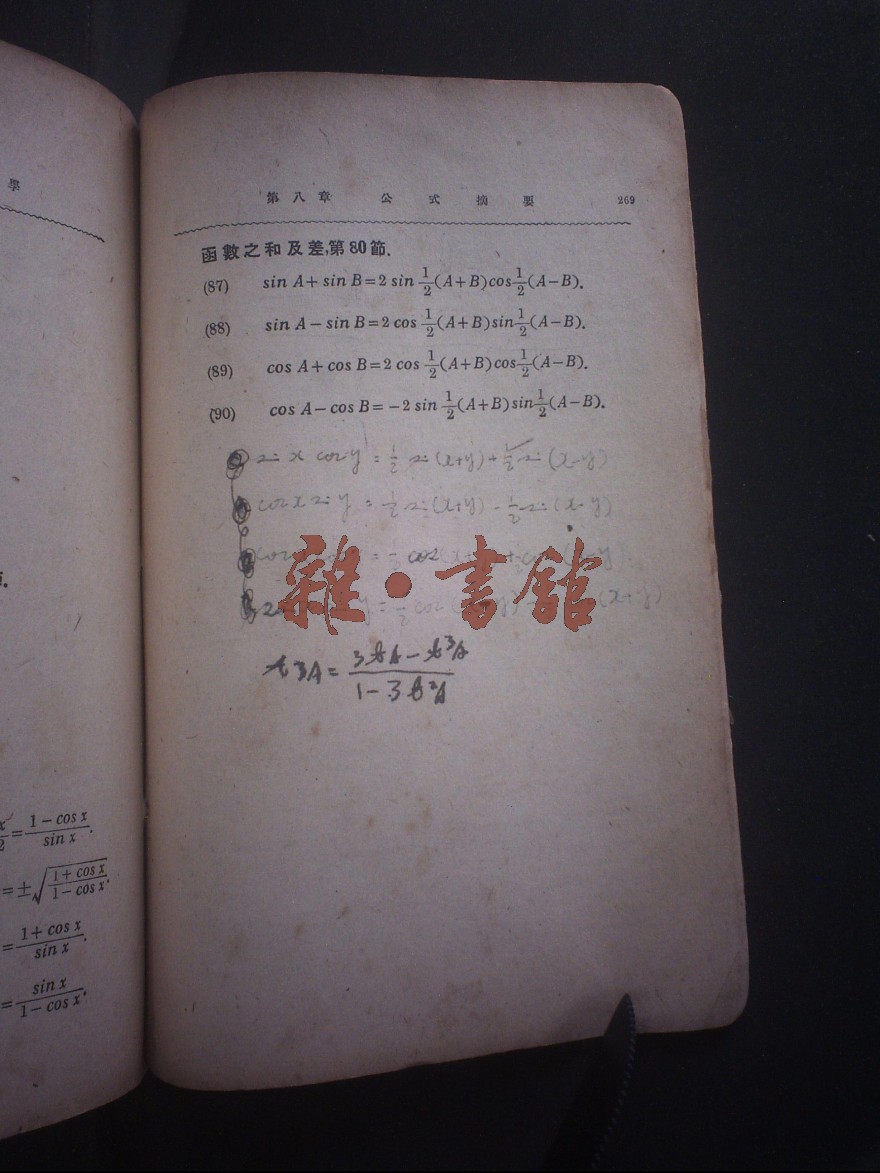 學
x/2 = (1 - cos x)/(sin x).
= ±√((1 + cos x)/(1 - cos x)).
= (1 + cos x)/(sin x).
= (sin x)/(1 - cos x).
第八章 公式摘要 269
函數之和及差,第80節.
(87) sin A + sin B = 2 sin 1/2 (A+B) cos 1/2 (A−B).
(88) sin A − sin B = 2 cos 1/2 (A+B) sin 1/2 (A−B).
(89) cos A + cos B = 2 cos 1/2 (A+B) cos 1/2 (A−B).
(90) cos A − cos B = −2 sin 1/2 (A+B) sin 1/2 (A−B).
sin x cos y = 1/2 sin (x+y) + 1/2 sin (x−y)
cos x sin y = 1/2 sin (x+y) - 1/2 sin (x-y)
雜·書館
t3A = (3tA − t³A)/(1 − 3t²A)